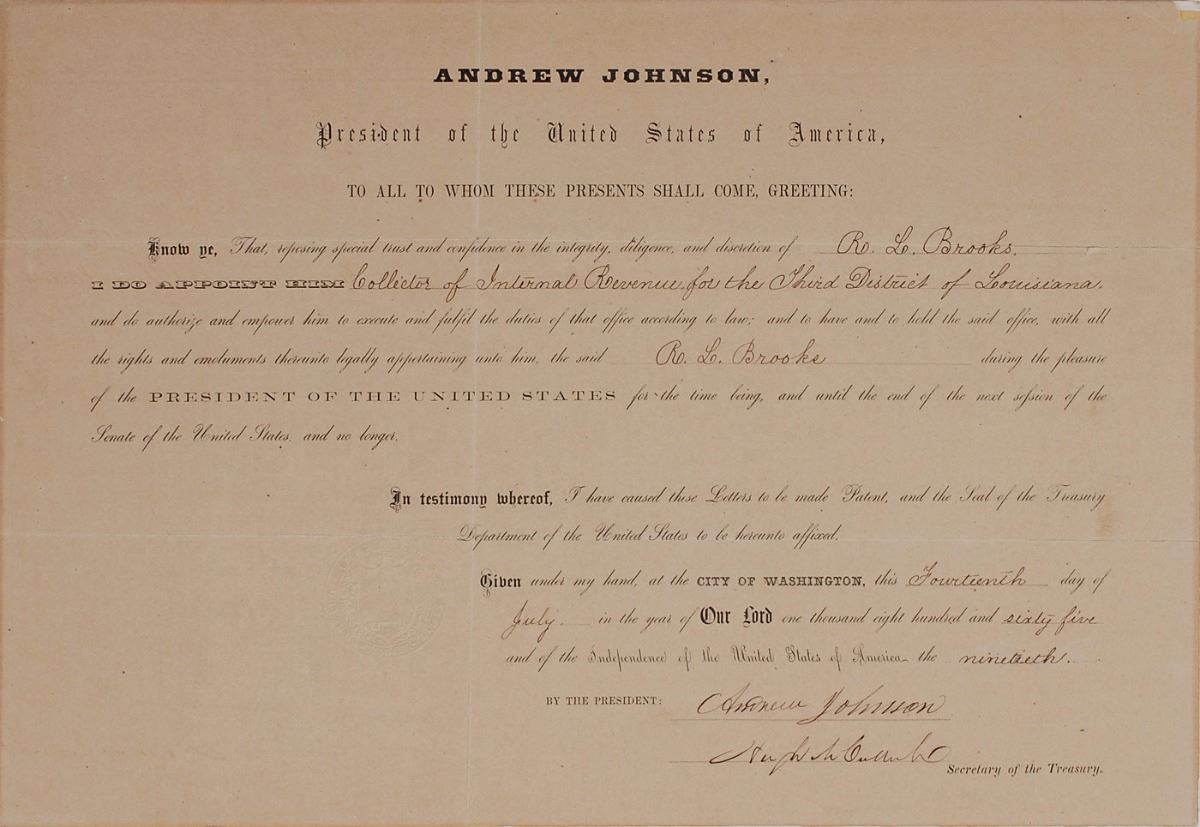 ANDREW JOHNSON,
President of the United States of America,
TO ALL TO WHOM THESE PRESENTS SHALL COME, GREETING:
Know ye, That, reposing special trust and confidence in the integrity, diligence, and discretion of R. L. Brooks,
I DO APPOINT HIM Collector of Internal Revenue, for the Third District of Louisiana,
and do authorize and empower him to execute and fulfil the duties of that office according to law; and to have and to hold the said office, with all
the rights and emoluments thereunto legally appertaining unto him, the said R. L. Brooks during the pleasure
of the PRESIDENT OF THE UNITED STATES for the time being, and until the end of the next session of the
Senate of the United States, and no longer.
In testimony whereof, I have caused these Letters to be made Patent, and the Seal of the Treasury
Department of the United States to be hereunto affixed.
Given under my hand, at the CITY OF WASHINGTON, this Fourteenth day of
July in the year of Our Lord one thousand eight hundred and sixty five
and of the Independence of the United States of America the ninetieth.
BY THE PRESIDENT: Andrew Johnson
Hugh McCulloch
Secretary of the Treasury.